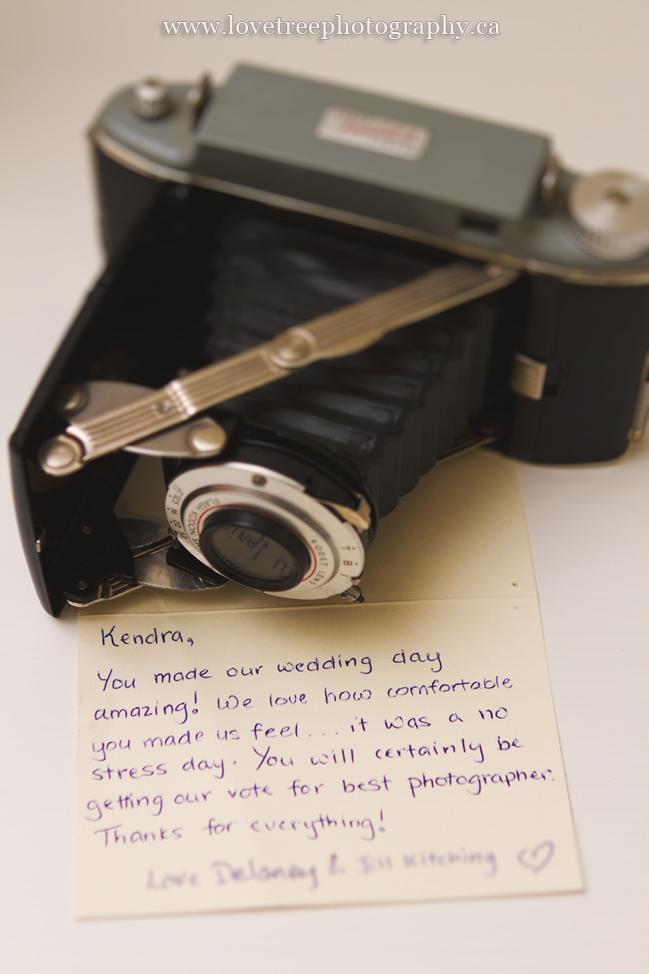 www.lovetreephotography.ca
FLASH KODON
KODET LENS
Kendra,
You made our wedding day
amazing! We love how comfortable
you made us feel... it was a no
stress day. You will certainly be
getting our vote for best photographer.
Thanks for everything!
Love Delaney & Jill Kitching ♡